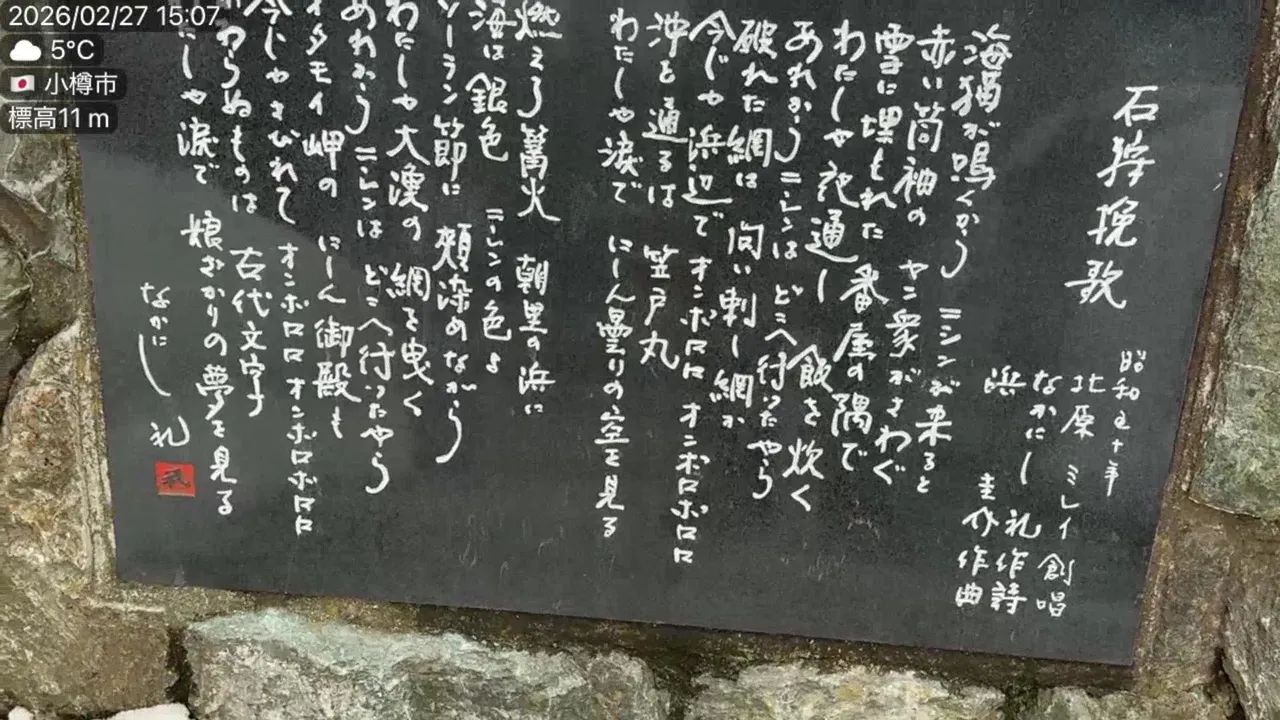 2026/02/27 15:07
5°C
小樽市
標高11 m
石狩挽歌
昭和五十年
北原ミレイ創唱
なかにし礼作詩
浜圭介作曲
海猫が鳴くから ニシンが来ると
赤い筒袖の ヤン衆がさわぐ
雪に埋もれた 番屋の隅で
わたしゃ夜通し 飯を炊く
あれからニシンは どこへ行ったやら
破れた網は 問い刺し網か
今じゃ浜辺で オンボロロ オンボロボロロ
沖を通るは 笠戸丸
わたしゃ涙で にしん曇りの空を見る
燃えろ篝火 朝里の浜に
海は銀色 ニシンの色よ
ソーラン節に 頬染めながら
わたしゃ大漁の 網を曳く
あれからニシンは どこへ行ったやら
オタモイ岬の にしん御殿も
今じゃさびれて オンボロロ オンボロボロロ
かわらぬものは 古代文字
わたしゃ涙で 娘ざかりの夢を見る
なかにし 礼